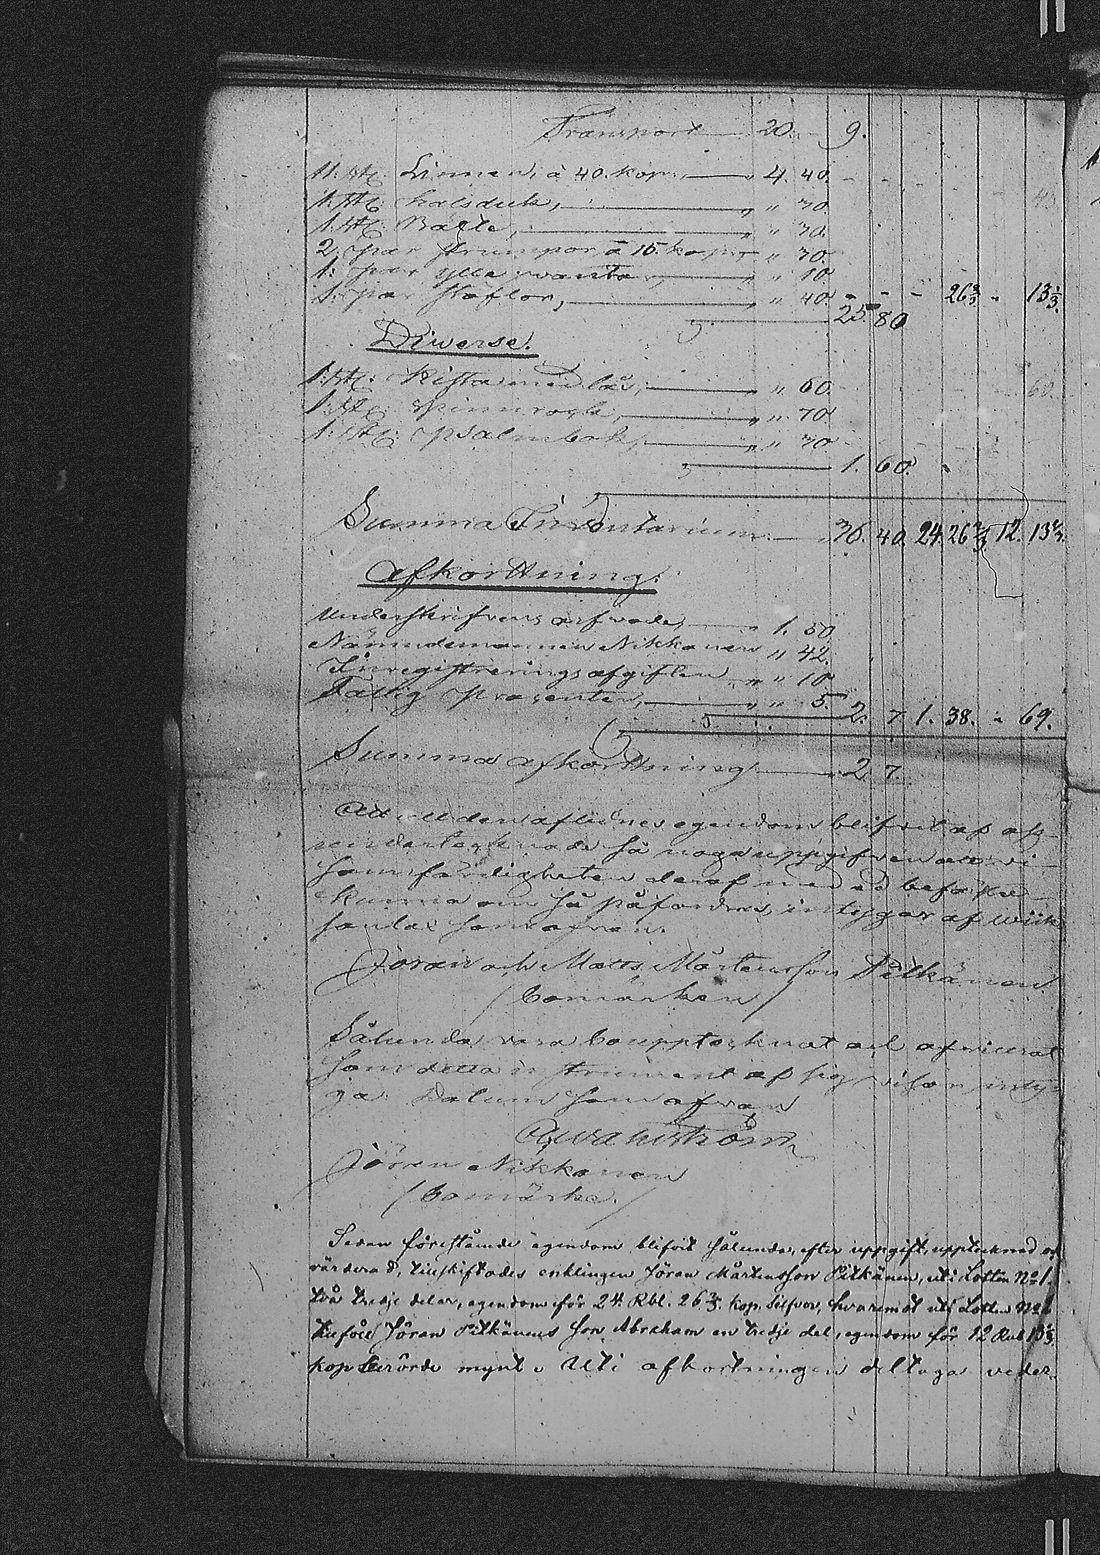 Transport 20. 9.
11. st: Linnen, à 40. kop: " 4. 40.
1. st: halsduk, " " 30. 40
1. st: Bälte, " " 70.
2. par strumpor à 15. kop: " " 30.
1. par ylle vantar, " " 10.
1. par stöflor, " " 40. 26 2/3 " 13 1/3.
25. 80
Diverse.
1. st: Kista med lås, " " 60. 60.
1. st: spinnrock, " " 70.
1. st: psalmbok, " " 30
1. 60.
Summa Inventarium 36. 40 24. 26 2/3. 12. 13 1/3.
afkorttning.
Underskrifvens arfvode, " 1. 50
Nämndemannen Nikkonen " " 42.
Inregistreringsafgiften " " 10
Fattig procenten, " " 5. 2. 7. 1. 38. " 69.
Summa afkorttning 2. 7.
Att all den aflidnes egendom blifvit af
så noga uppgifven att vi
sanfärdigheten deraf med ed bekräfta
kunna om så påfordras, intygar af
som ofvan.
Jöran och Matts Mårtensson Pitkänen
/ bomärken /
Sålunda vara bouppteknat och
som detta instrument af sig visar inty-
ga. Datum som ofvan
Jöran Nikkonen
/ bomärke. /
Sedan förestående egendom blifvit sålunda, efter uppgift, upptecknad och
värderad, tillskiftades enklingen Jöran Mårtensson Pitkänen, uti Lotten No 1.
två tredje delar, egendom för 24 Rbl. 26 2/3. kop. Silfver, hvaremot uti Lotten No
tillföll Jöran Pitkänens son Abraham en tredje del, egendom för 12 Rub 13 1/3.
kop berörde mynt. Uti afkortningen deltoga veder-